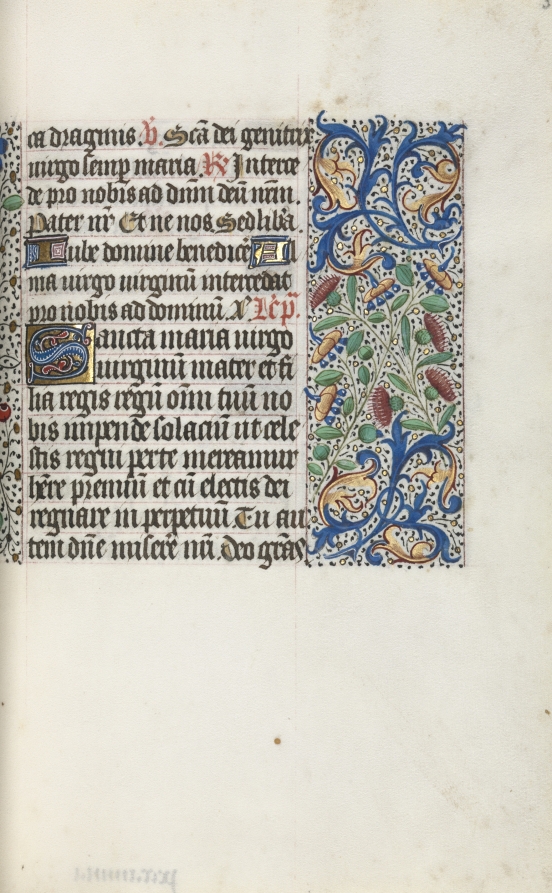 ca dragmis. V̄. Scā dei genitrix
uirgo semꝑ maria R̸ Interce
de pro nobis ad dnm̄ deū nrm̄.
Pater nr̄ Et ne nos. Sed liba.
Iube domine benedicē Al
ma uirgo uirginū intercedat
pro nobis ad dominū.
Sancta maria uirgo
uirginū mater et fi
lia regis regū om̄iū no
bis impende solaciū ut cele
stis regni perte mereamur
hēre premiū et cū electis dei
regnare in perpetuū Tu au
tem dn̄e miserē nr̄i. deo grās